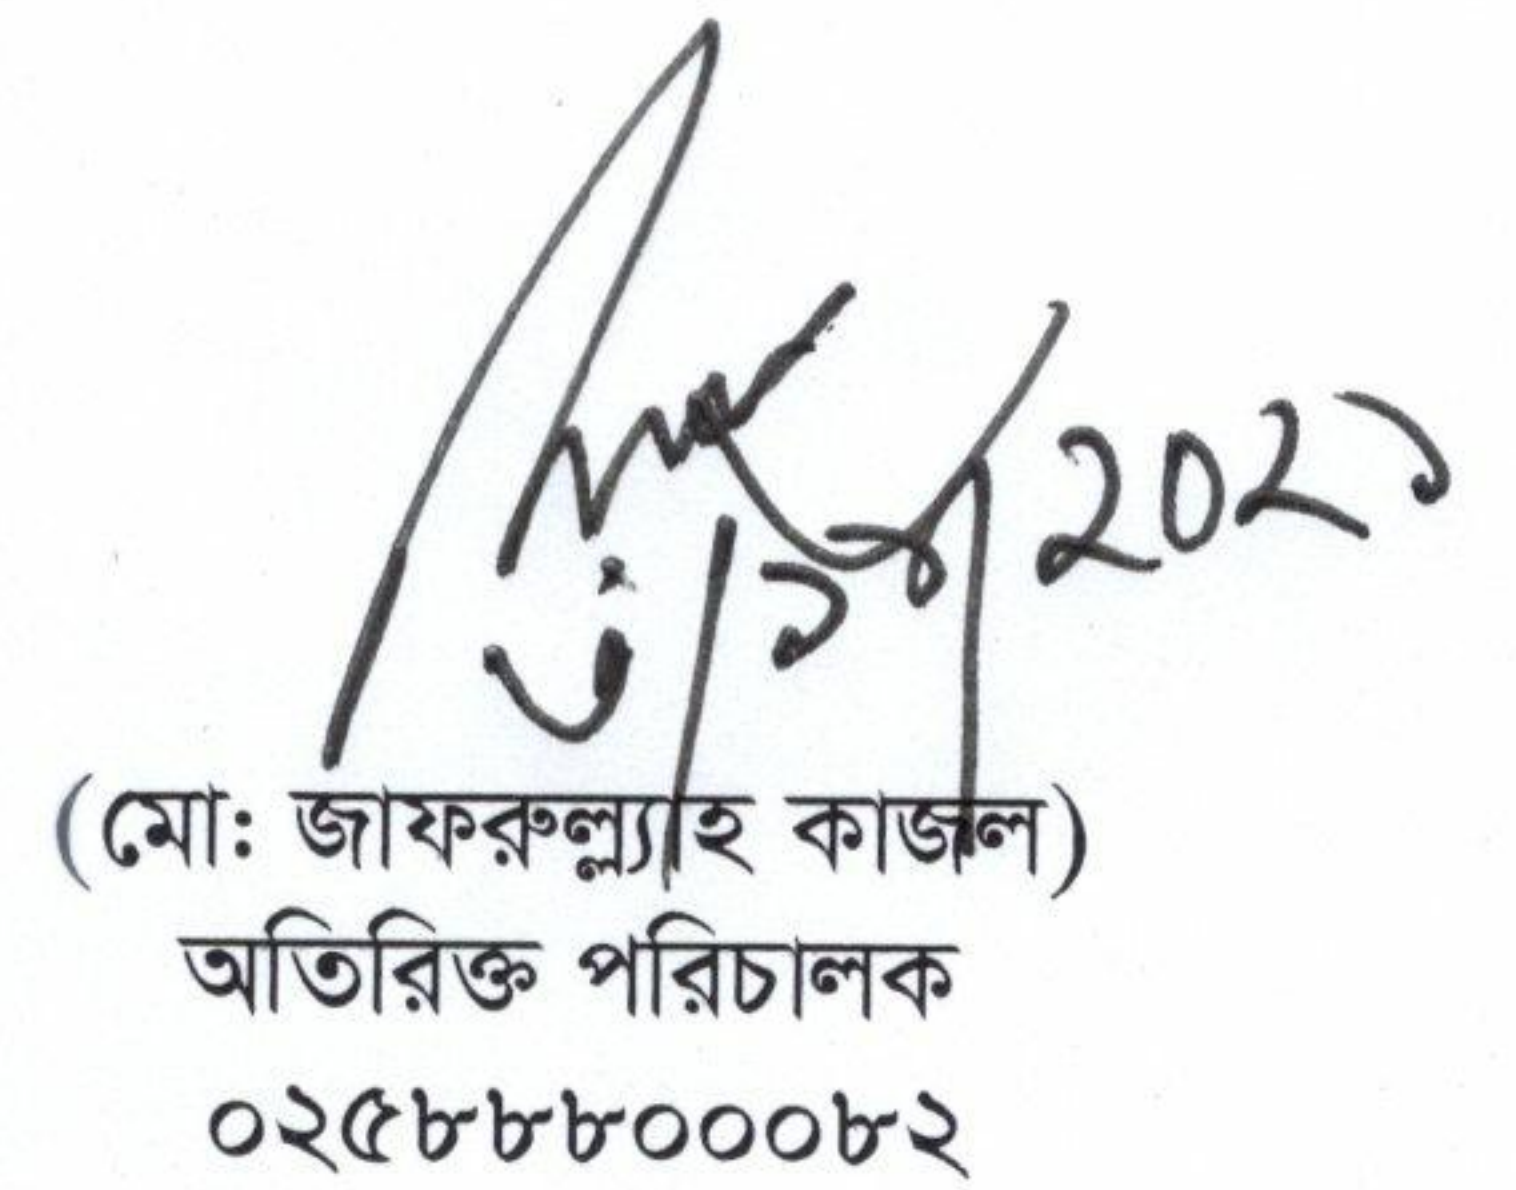 ২০২১
(মো: জাফরুল্ল্যাহ কাজল)
অতিরিক্ত পরিচালক
০২৫৮৮৮০০০৮২